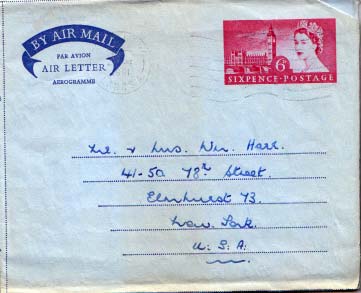 BY AIR MAIL
PAR AVION
AIR LETTER
AEROGRAMME
6D
SIXPENCE·POSTAGE
Mr. & Mrs. Wm. Hass.
41-50 78th Street.
Elmhurst 73.
New York.
U.S.A.